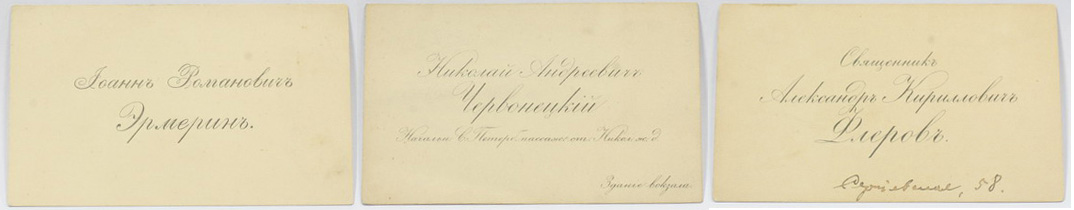 Іоаннъ Романовичъ
Эрмеринъ.
Николай Андреевичъ
Червонецкій
Началн. С. Петерб. пассаж. ст. Никол. ж. д.
Зданіе вокзала.
Священникъ
Александръ Кирилловичъ
Флеровъ.
58.